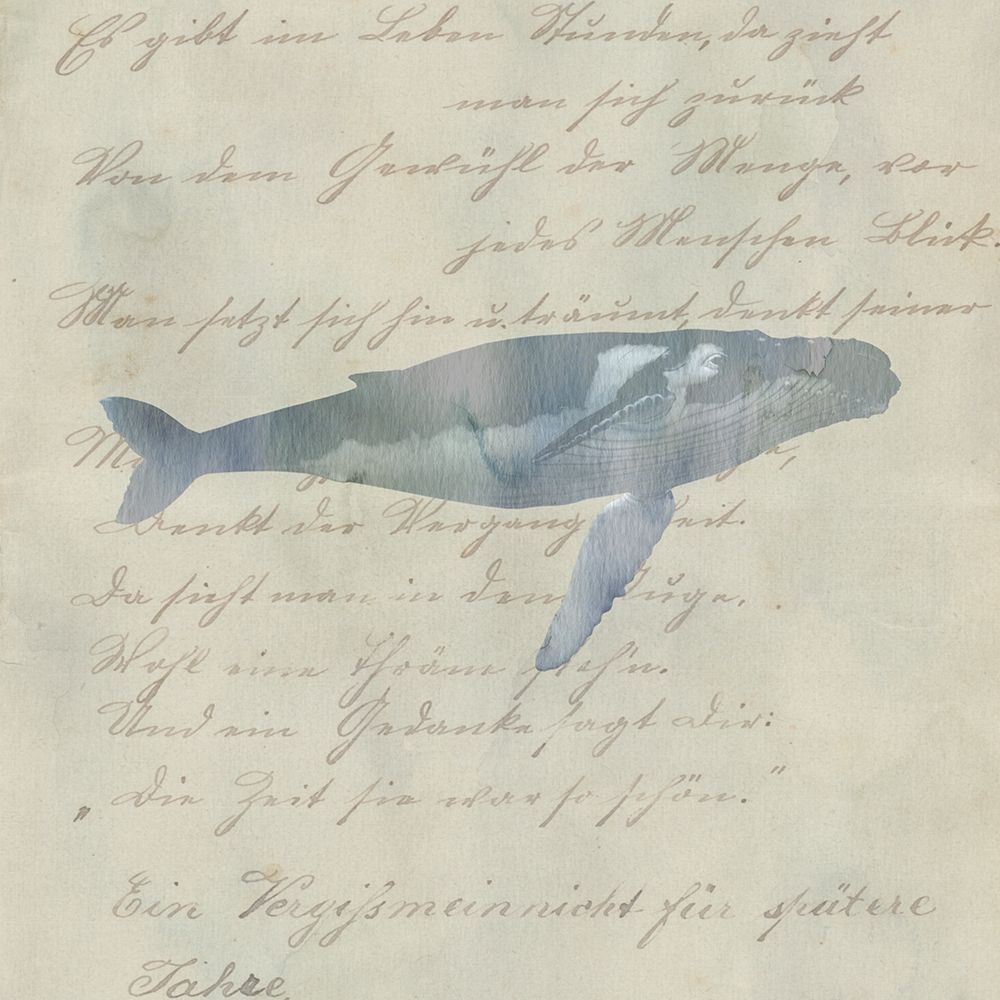 Es gibt im Leben Stunden, da zieht
man sich zurück
Von dem Gewühl der Menge, vor
jedes Menschen Blick.
Man setzt sich hin u. träumt, denkt seiner
Denkt der Vergang eit.
Da sieht man in dem Auge,
Wohl eine Thräne steh'n.
Und ein Gedanke sagt Dir:
„Die Zeit sie war so schön.”
Ein Vergißmeinnicht für spätere
Jahre.